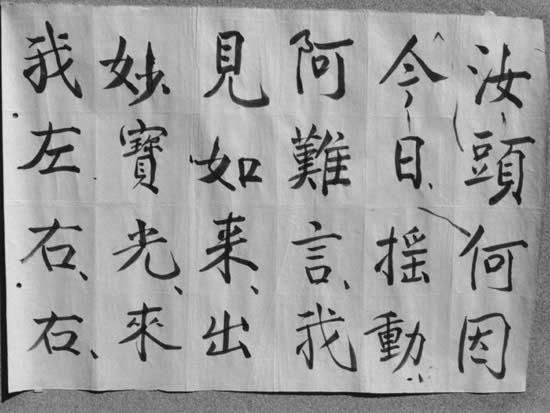 汝頭何因
今日、摇動、
阿難言、我
見如来、出
妙寶光、來
我左右、右、